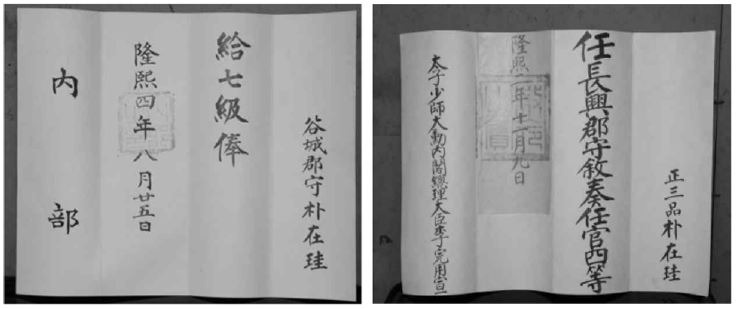 谷城郡守朴在珪
給七級俸
隆熙四年八月廿五日
內部
正三品朴在珪
任長興郡守敘奏任官四等
隆熙二年十一月九日
太子少師大勳內閣總理大臣李完用宣